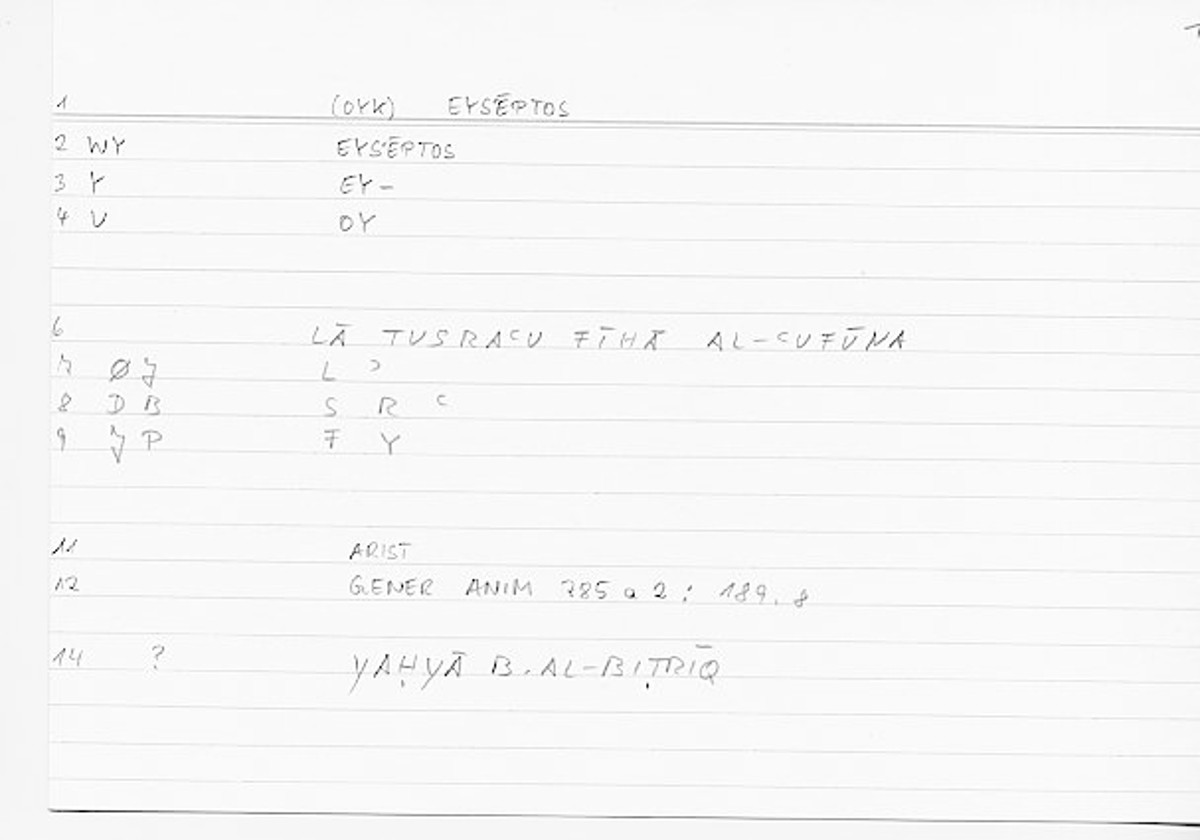 1 (OYK) EYSĒPTOS
2 WY EYSĒPTOS
3 Y EY-
4 V OY
6 LĀ TUSRAʿU FĪHĀ AL-ʿUFŪNA
7 Ø J L ʾ
8 D B S R ʿ
9 J P F Y
11 ARIST
12 GENER ANIM 785 a 2 : 189.8
14 ? YAḤYĀ B. AL-BIṬRĪQ